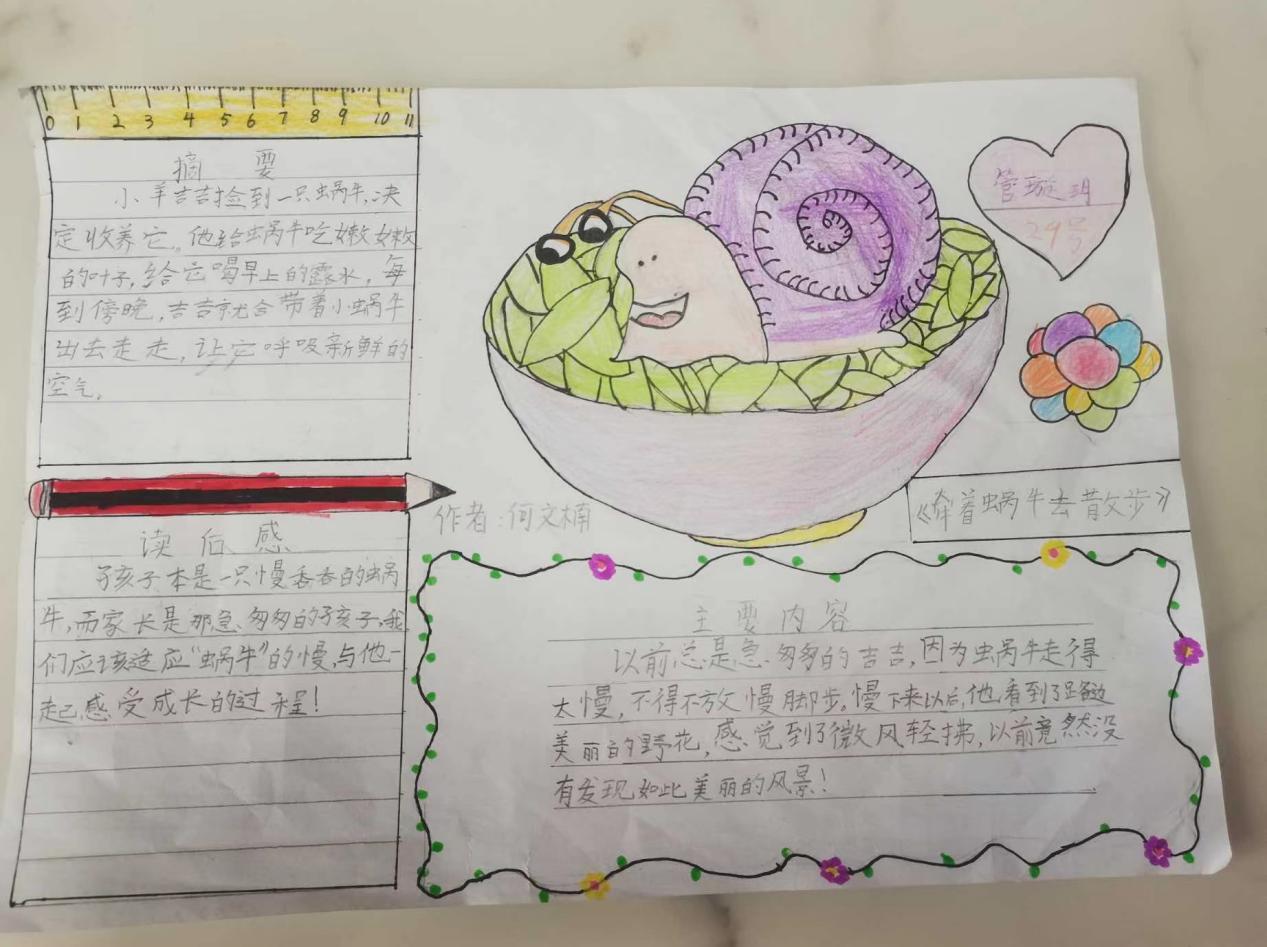 0 1 2 3 4 5 6 7 8 9 10 11
摘 要
小羊吉吉捡到一只蜗牛,决
定收养它。他给蜗牛吃嫩嫩
的叶子,给它喝早上的露水,每
到傍晚,吉吉就会带着小蜗牛
出去走走,让它呼吸新鲜的
空气。
读后感
孩子本是一只慢吞吞的蜗
牛,而家长是那急匆匆的孩子,我
们应该适应“蜗牛”的慢,与他一
起感受成长的过程!
管璇玥
29号
作者:何文楠
《牵着蜗牛去散步》
主要内容
以前总是急匆匆的吉吉,因为蜗牛走得
太慢,不得不放慢脚步。慢下来以后,他看到了路边
美丽的野花,感觉到了微风轻拂,以前竟然没
有发现如此美丽的风景!